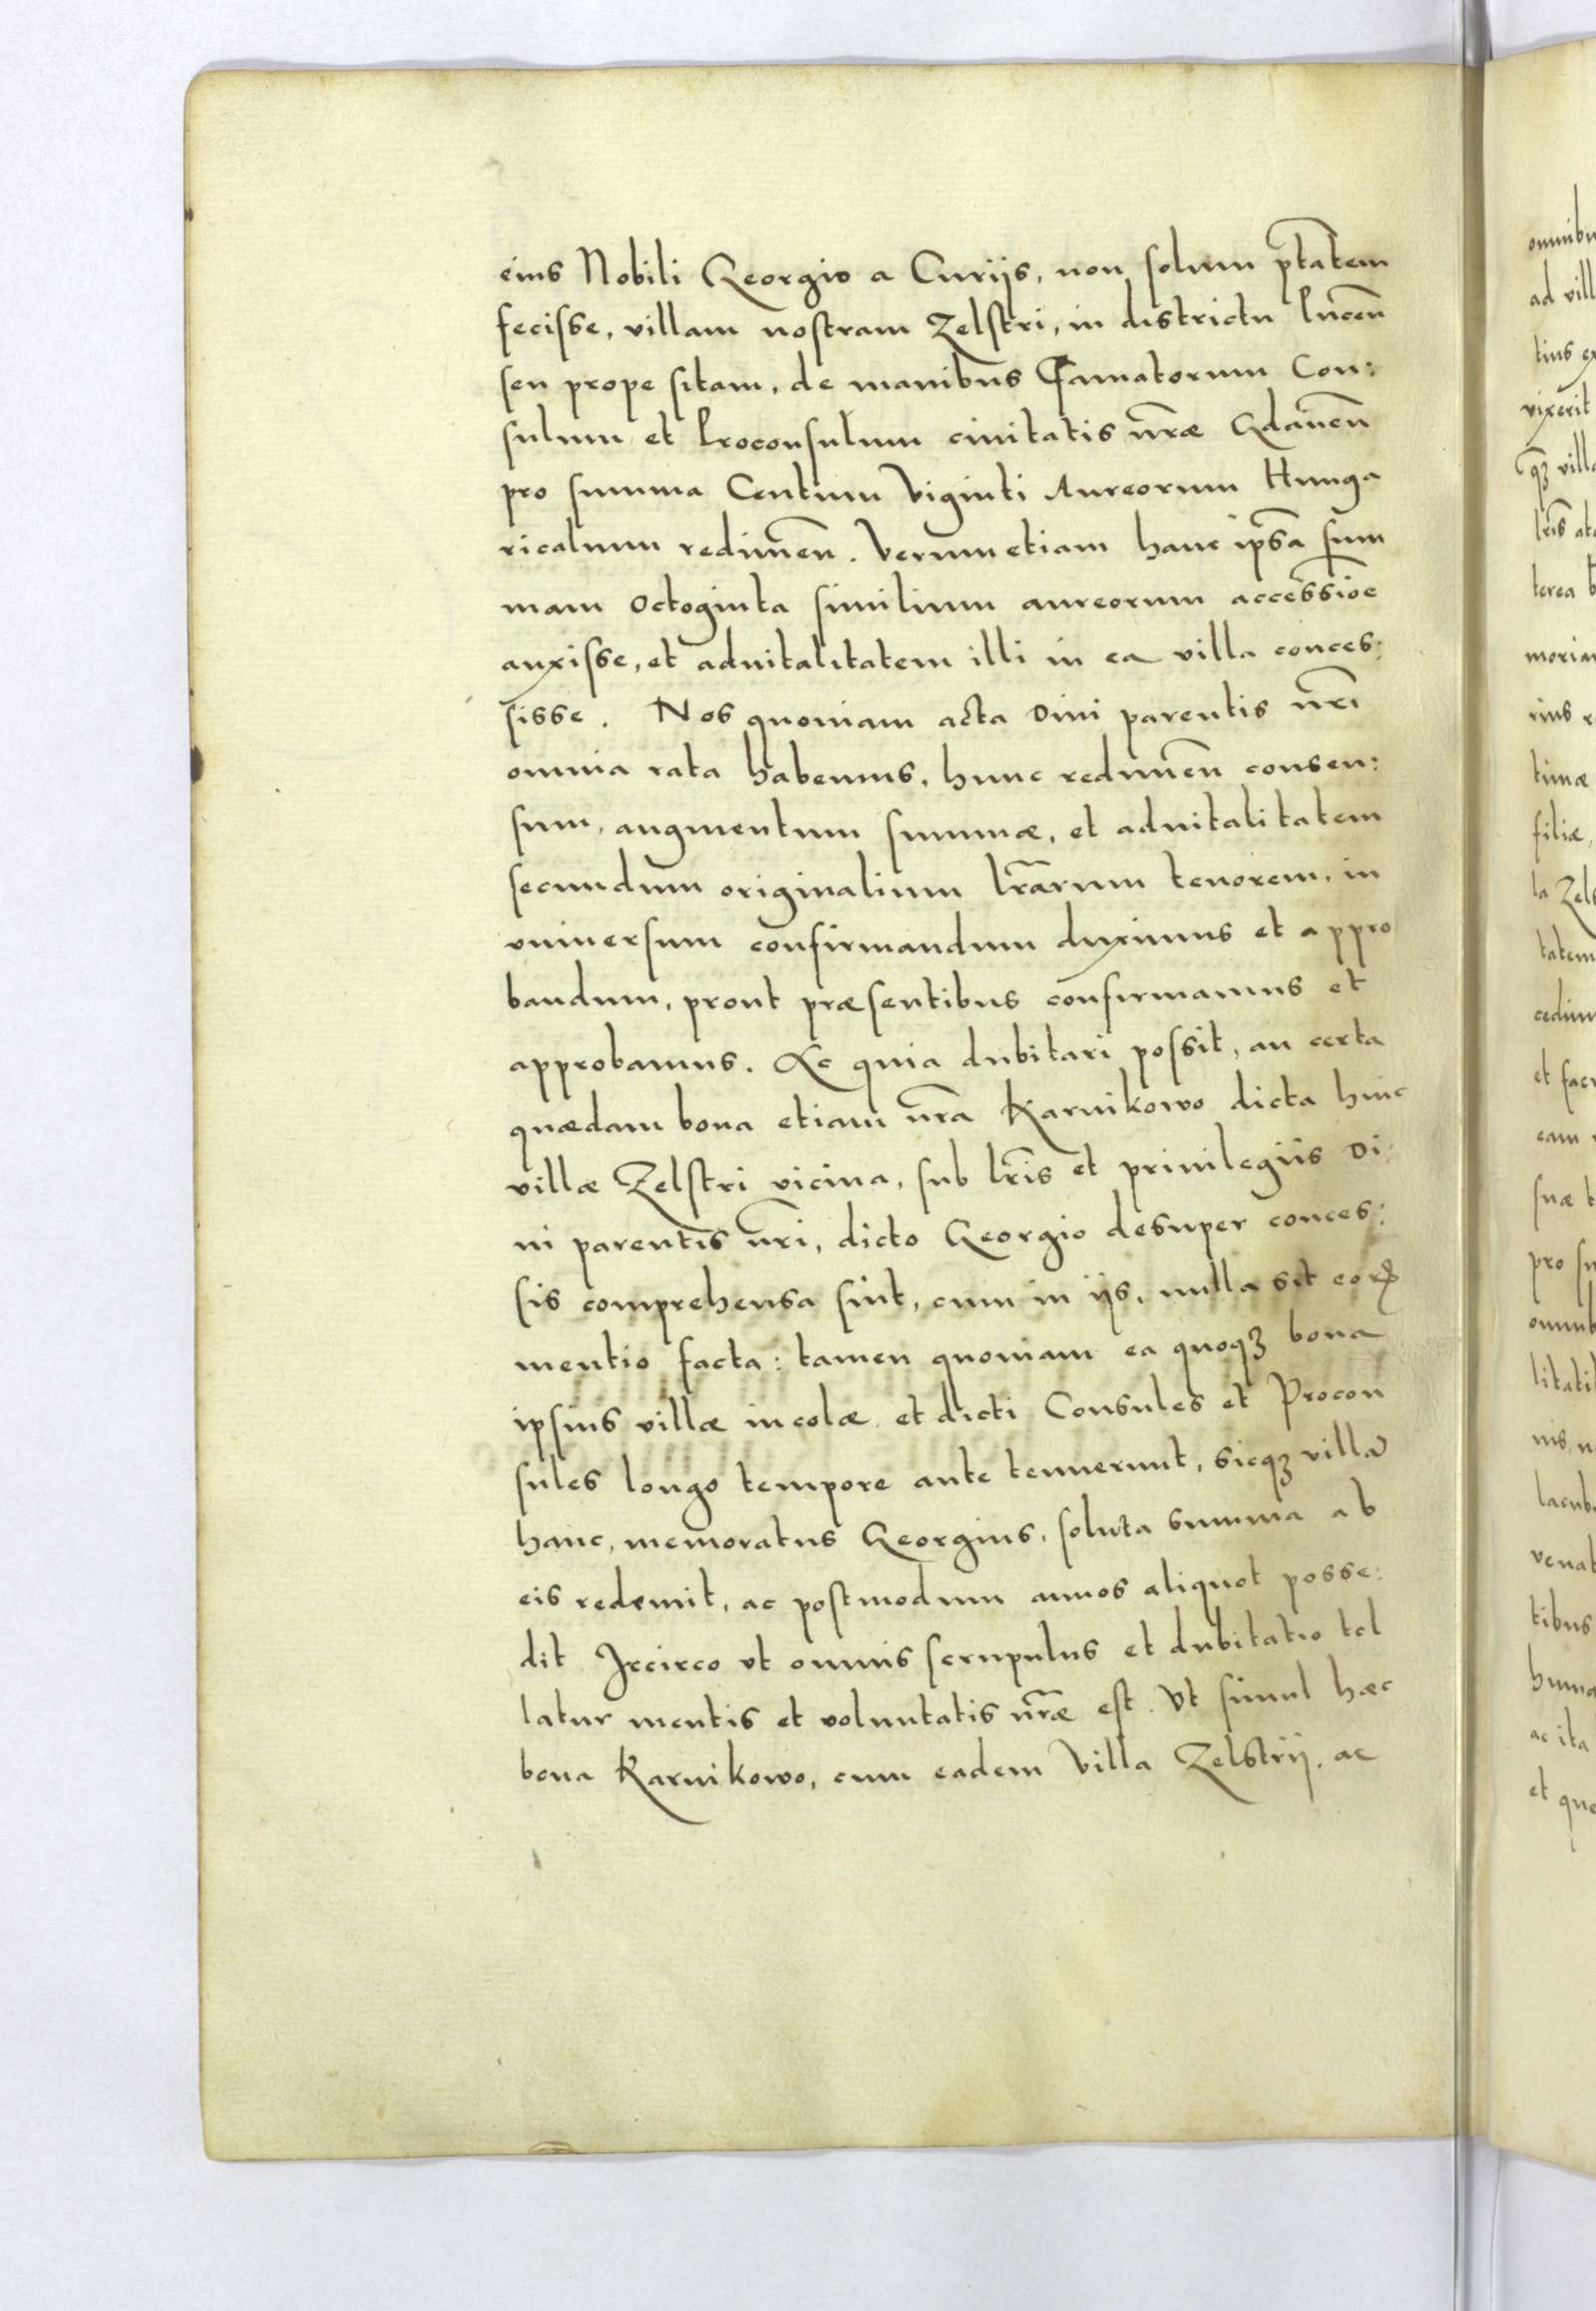 eius Nobili Georgio a Curijs, non solum ptãtem
fecisse, villam nostram Zelstri, in districtu Pucen̄
seu prope sitam, de manibus Famatorum Con:
sulum et Proconsulum ciuitatis nr̃æ Gdanen̄
pro summa Centum Viginti Aureorum Hunga
ricalium redimen̄. Verumetiam hanc ipsã sum
mam Octoginta similium aureorum accessiõe
auxisse, et aduitalitatem illi in ea villa conces:
sisse. Nos quoniam acta Diui parentis nr̃i
omnia rata habemus, hunc redimen̄ consen:
sum, augmentum summæ, et aduitalitatem
secundum originalium lr̃arum tenorem, in
vniuersum confirmandum duximus et appro
bandum, prout præsentibus confirmamus et
approbamus. Ac quia dubitari possit, an certa
quædam bona etiam nr̃a Karnikowo dicta huic
villæ Zelstri vicina, sub lr̃is et priuilegijs Di:
ui parentis nr̃i, dicto Georgio desuper conces:
sis comprehensa sint, cum in ijs, nulla sit eorꝝ
mentio facta: tamen quoniam ea quoqꝫ bona
ipsius villæ incolæ et dicti Consules et Procon
sules longo tempore ante tenuerunt, sicqꝫ villã
hanc, memoratus Georgius, soluta summa ab
eis redemit, ac postmodum annos aliquot posse:
dit Jccirco vt omnis scrupulus et dubitatio tol
latur mentis et voluntatis nr̃æ est. Vt simul hæc
bona Karnikowo, cum eadem Villa Zelstrij, ac
omnibu
ad vill
tius ex
vixerit
qꝫ villa
lr̃is
terea
moriam
rius
timæ
filiæ,
la Zels
tatem
cedim
et facu
eam
suæ
pro su
omnib
litatib
nis,
lacub
venat
tibus
huma
ac ita
et que